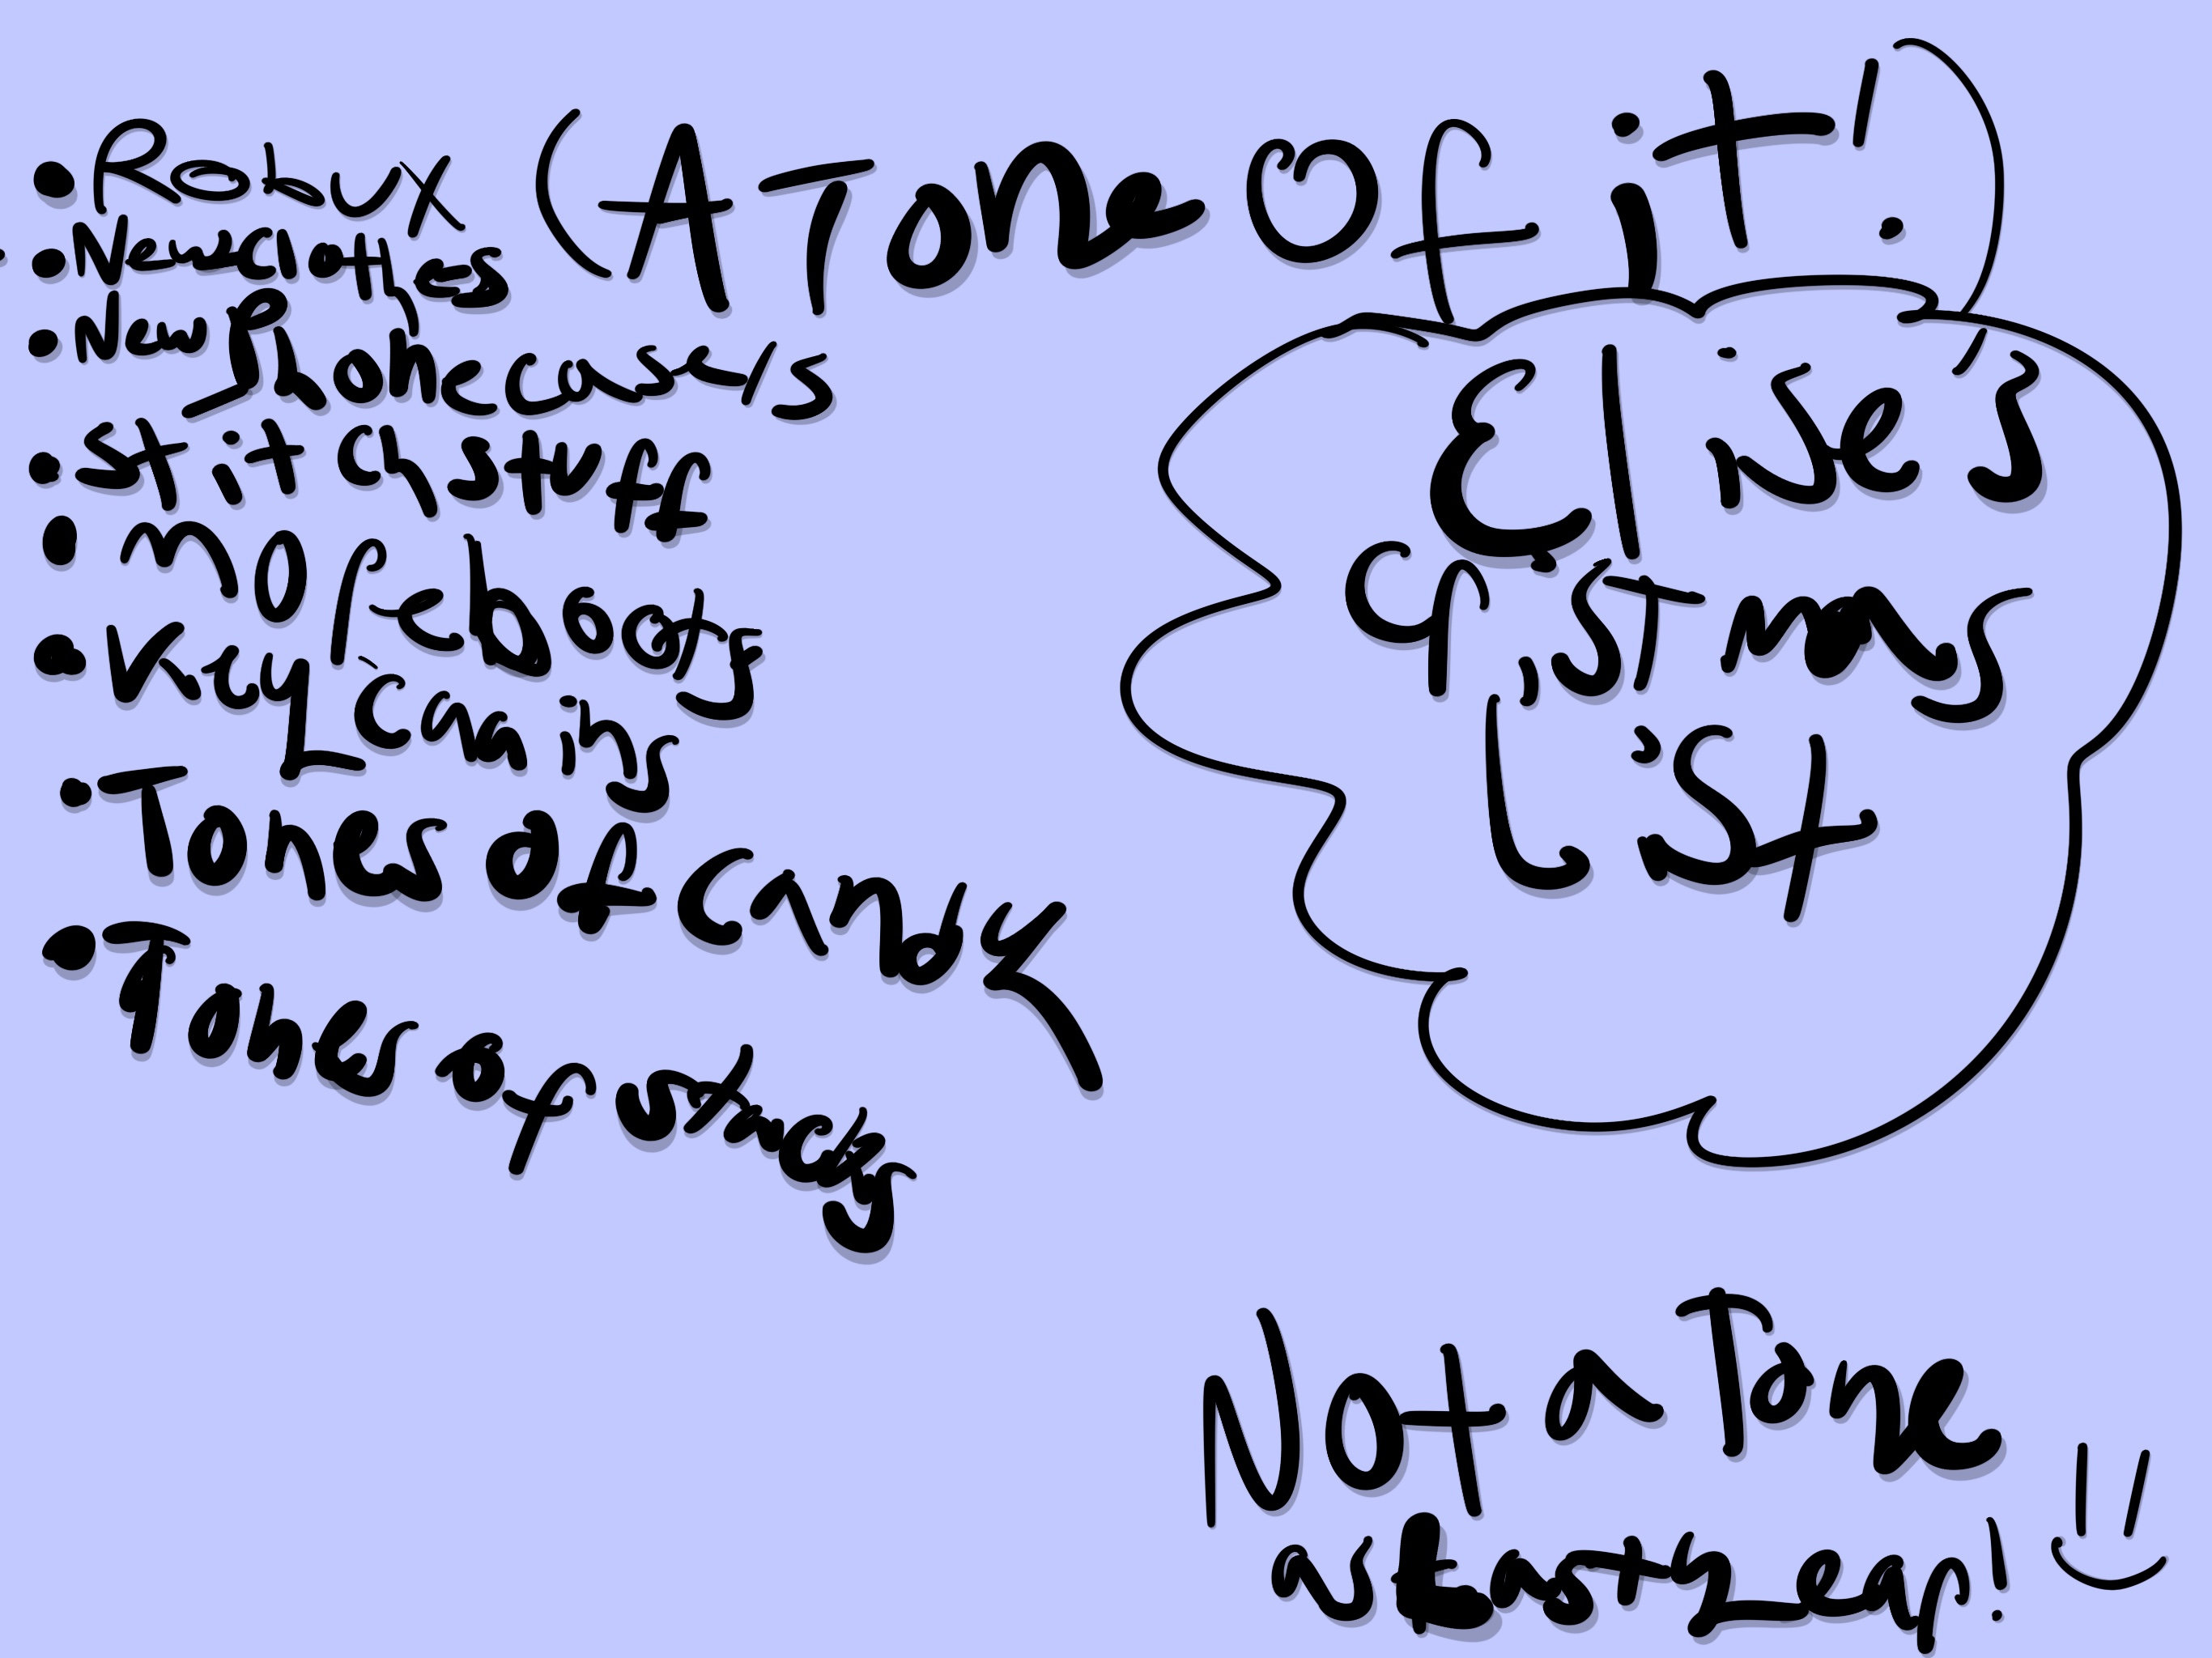 • Robux (A Tone Of it!)
• New Clothes
• New Phone case/s
• Stitch stuff
• more boots
• Key Canins
• Tones of candy
• Tones of stncks
Elise's
Cristmas
List
Not a Tone
as Last year!